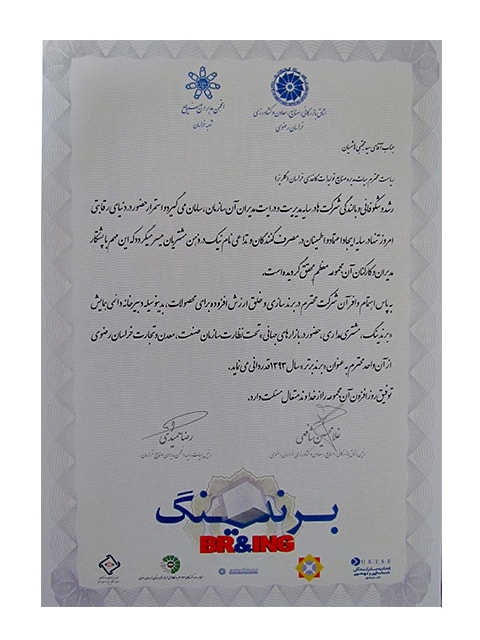 انجمن مدیران صنایع
شعبه خراسان
اتاق بازرگانی، صنایع، معادن و کشاورزی
خراسان رضوی
جناب آقای سید مجتبی هاشمیان
ریاست محترم هیات مدیره صنایع تولیدات کاغذی خراسان (گلریز)
رشد و شکوفائی و بالندگی شرکت ها در سایه مدیریت و درایت مدیران آن سازمان، سامان می گیرد و استمرار حضور در دنیای رقابتی
امروز تنها در سایه ایجاد اعتماد و اطمینان در مصرف کنندگان و تداعی نام نیک در ذهن مشتریان میسر میگردد که این مهم با پشتکار
مدیران و کارکنان آن مجموعه معظم محقق گردیده است.
به پاس اهتمام وافر آن شرکت محترم در برندسازی و خلق ارزش افزوده برای محصولات، بدینوسیله دبیرخانه دائمی همایش
«برندینگ، مشتری مداری، حضور در بازارهای جهانی» تحت نظارت سازمان صنعت، معدن و تجارت خراسان رضوی
از آن واحد محترم به عنوان «برند برتر» سال ۱۳۹۳ قدردانی می نماید.
توفیق روزافزون آن مجموعه را از خداوند متعال مسئلت دارد.
غلامحسین شافعی
رئیس اتاق بازرگانی، صنایع، معادن و کشاورزی خراسان رضوی
رضا حمیدی
رئیس هیات مدیره انجمن مدیران صنایع خراسان
برندینگ
BR&ING
U.E.T.S.E